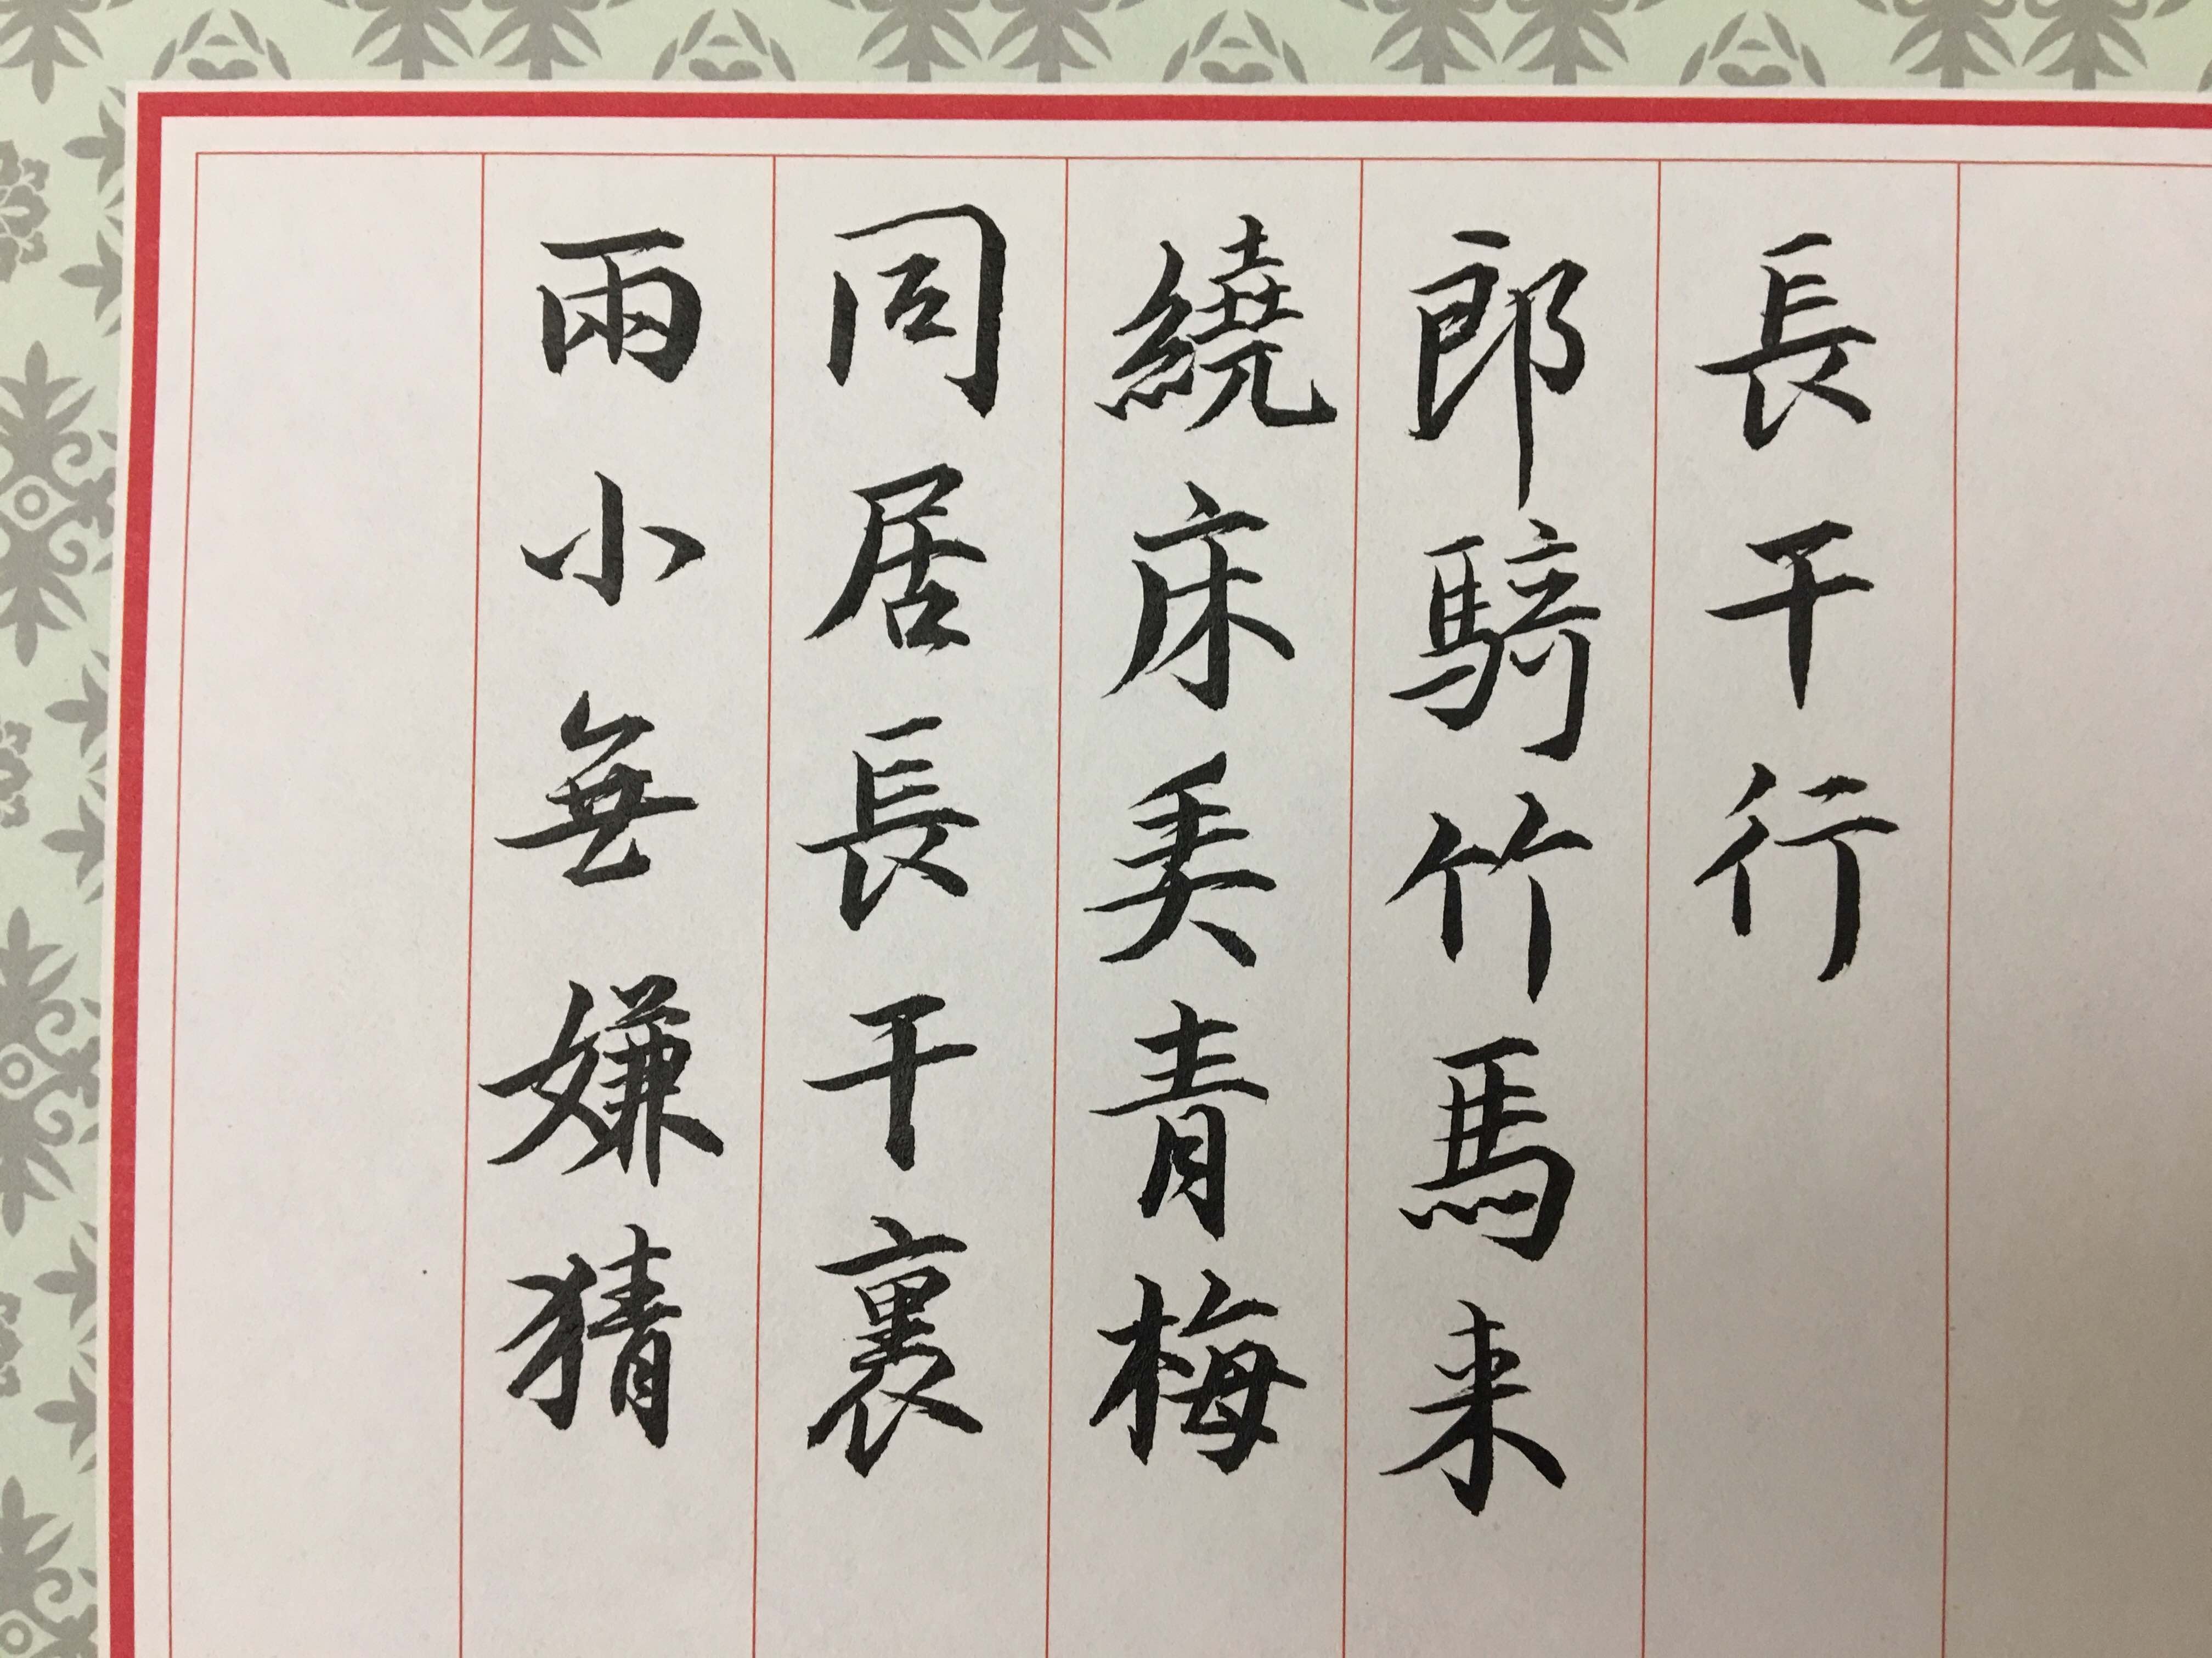 長干行
郎騎竹馬来
繞床弄青梅
同居長干裏
兩小無嫌猜